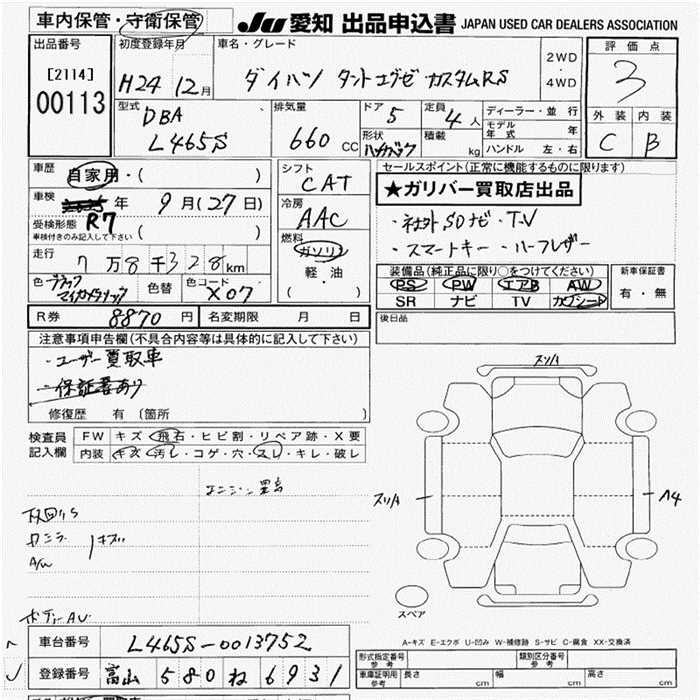 車内保管・守衛保管
JU 愛知 出品申込書 JAPAN USED CAR DEALERS ASSOCIATION
出品番号
[2114]
00113
初度登録年月
H24 12月
車名・グレード
ダイハツ タントエグゼ カスタムRS
2WD
4WD
評価点
3
外装 内装
C B
型式
DBA
L465S
排気量
660 CC
ドア
5
定員
4人
形状
ハッチバック
積載
kg
ディーラー・並行
モデル年式 年
ハンドル 左・右
車歴
自家用・( )
車検
年 9月(27日)
R7
受検形態
車検付きのみ記入して下さい
( )
走行
7万8千328km
色
ブラックマイカメタリック
色替
色コード
X07
シフト
CAT
冷房
AAC
燃料
ガソリン
軽・油
( )
セールスポイント(正常に機能するものに限ります)
★ガリバー買取店出品
・社外SDナビ・TV
・スマートキー・ハーフレザー
装備品(純正品に限り○をつけてください)
PS PW エアB AW
SR ナビ TV カワシート
新車保証書
有・無
R券 8870円
名変期限 月 日
後日品
注意事項申告欄(不具合内容等は具体的に記入して下さい)
・ユーザー買取車
・保証書あり
修復歴 有 〔箇所 〕
検査員記入欄
FW キズ・飛石・ヒビ割・リペア跡・X要
内装 キズ・汚レ・コゲ・穴・スレ・キレ・破レ
キズ
A/W
スリA
スリA
A4
スペア
A-キズ E-エクボ U-凹み W-補修跡 S-サビ C-腐食 XX-交換済
車台番号 L465S-0013752
登録番号 富山 580 ね 6931
形式指定番号
参考
類別区分番号
参考
車庫証明用
参考
長さ cm 幅 cm 高さ cm